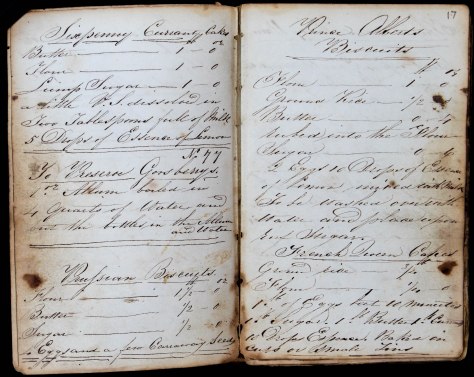 Sixpenny Currant Cakes
℔ oz
Butter — 1 - 0
Flour — 1 - 0
Lump Sugar — 1 - 0
a little V.S. dissolved in
Two Tablespoons full of Milk
5 Drops of Essence of Lemon
No 77
To Preserve Goosberrys.
1 oz Allum boiled in
4 Quarts of Water and
put the bottles in the Allum
and Water
Prussian Biscuits
℔ oz
Flour — 1½ - 0
Butter — ½ - 0
Sugar — ½ - 0
Eggs and a few Carraway Seeds
17
Prince Alberts
Biscuits
℔ oz
Flour — 1
Ground Rice — ½
Butter — 0
rubed into the Flour
Sugar — 0
2 Eggs 10 Drops of Essence
of Lemon
To be washed over with
Water and place upon
French Queen Cakes
Ground rice ½
Flour — ½ 0
1 ℔ of Eggs beat 10 minutes
Sugar 1 ℔ Butter
10 Drops Essence Baked in
or Small Tins